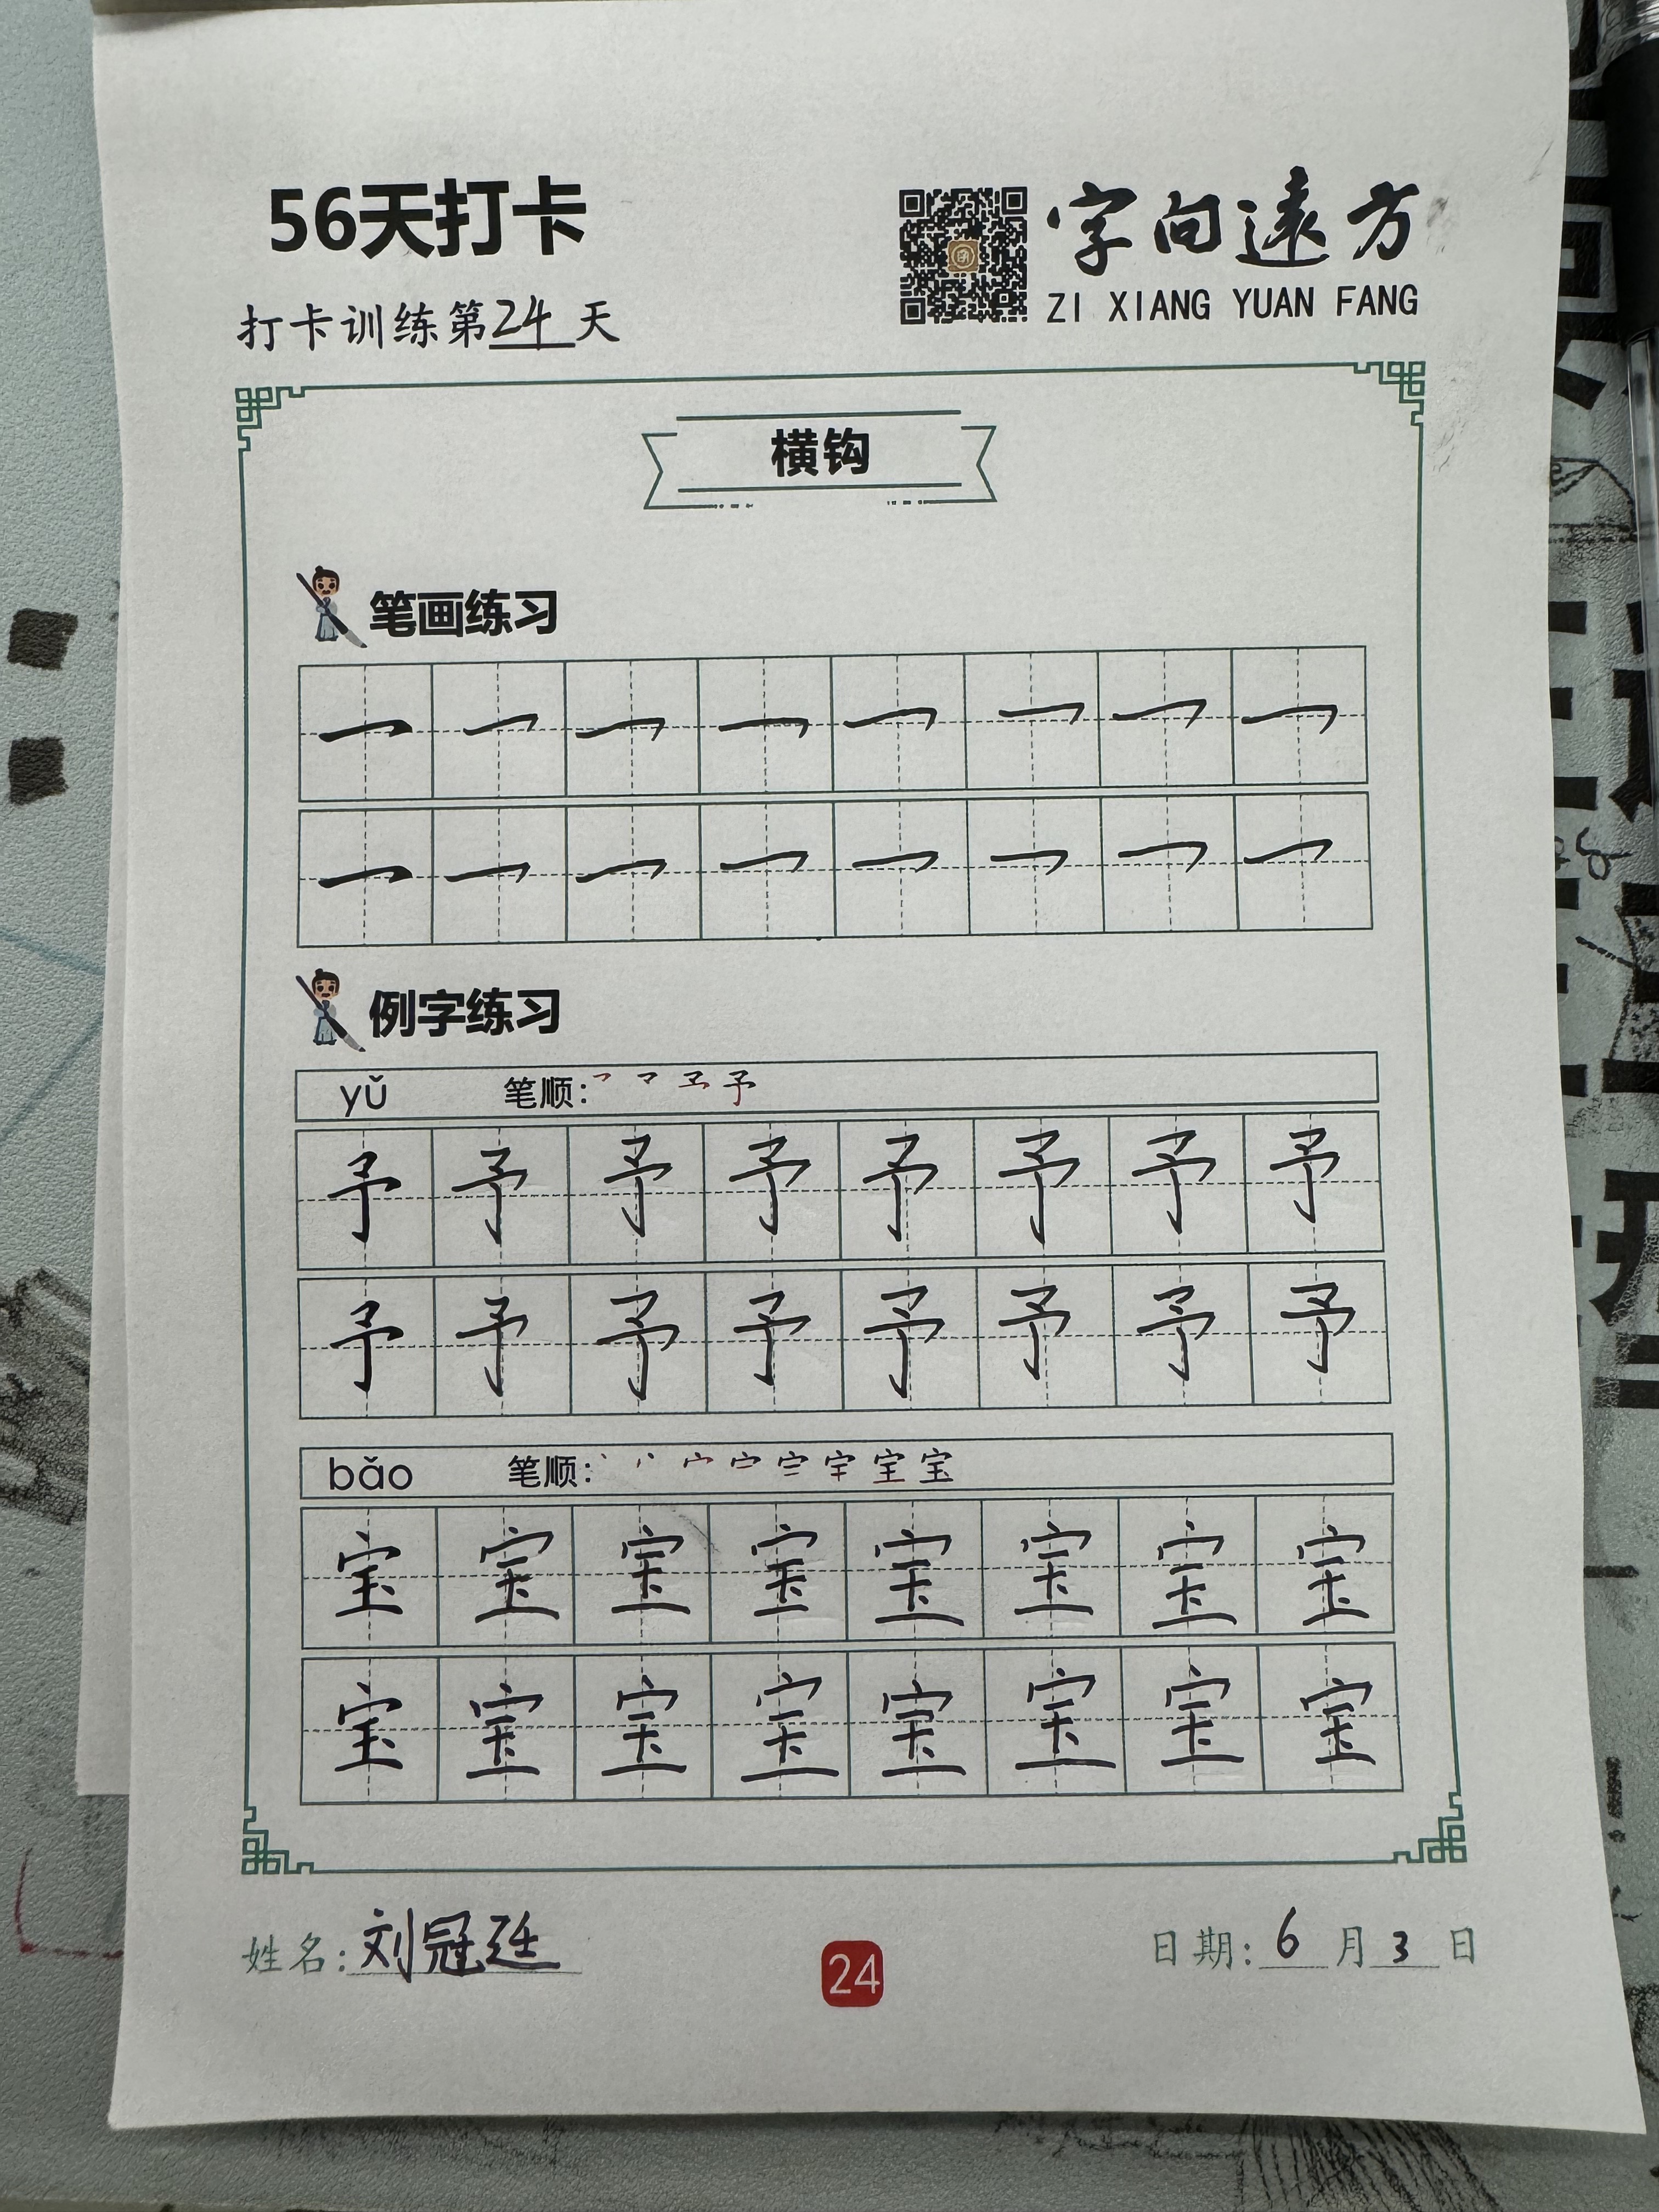 56天打卡
字向遠方
ZI XIANG YUAN FANG
打卡训练第24天
横钩
笔画练习
例字练习
yǔ 笔顺:
予予予予予予予予
予予予予予予予予
bǎo 笔顺:
宝宝宝宝宝宝宝宝
宝宝宝宝宝宝宝宝
姓名:刘冠廷
24
日期:6月3日